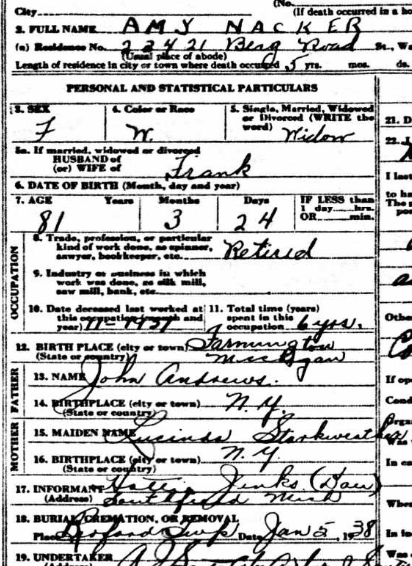 City
(No.
(If death occurred in a ho
2. FULL NAME AMY NACKER
(a) Residence No. 22421 Berg Road St., Wa
(Usual place of abode)
Length of residence in city or town where death occurred 5 yrs. mos. ds.
PERSONAL AND STATISTICAL PARTICULARS
3. SEX 4. Color or Race 5. Single, Married, Widowed
or Divorced (WRITE the
word)
F W. Widow
21. D
22. I
5a. If married, widowed or divorced
HUSBAND of
(or) WIFE of Frank
I last
6. DATE OF BIRTH (Month, day and year)
to ha
7. AGE Years Months Days IF LESS than
1 day hrs.
OR min.
81 3 24
The
OCCUPATION
8. Trade, profession, or particular
kind of work done, as spinner,
sawyer, bookeeper, etc. Retired
9. Industry or business in which
work was done, as silk mill,
saw mill, bank, etc.
10. Date deceased last worked at
this occupation (month and
year) 11-1937
11. Total time (years)
spent in this
occupation 6 yrs.
Othe
12. BIRTH PLACE (city or town) Farmington
(State or country) Michigan
FATHER
13. NAME John Andrews.
If op
14. BIRTHPLACE (city or town) N.Y.
(State or country)
Cond
MOTHER
15. MAIDEN NAME Lucinda Starkweather
Was
16. BIRTHPLACE (city or town) N.Y.
(State or country)
17. INFORMANT Jinks (Dau)
(Address) Southfield Mich
Wher
18. BURIAL, CREMATION, OR REMOVAL
Place Twp Date Jan 5, 1938
In fo
19. UNDERTAKER
Was